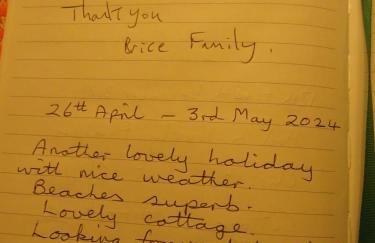 Thank you
Brice Family.
26th April - 3rd May 2024
Another lovely holiday
with nice weather.
Beaches superb.
Lovely cottage.
Looking